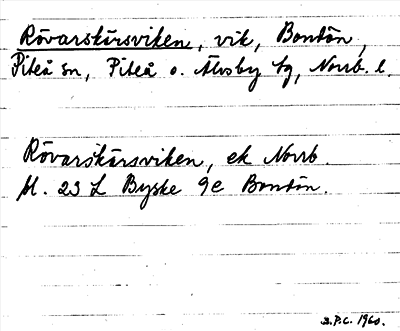 Rövarskärsviken, vik, Bondön,
Piteå sn, Piteå o. Älvsby tg, Norrb. l.
Rövarskärsviken, ek Norrb.
bl. 23 L Byske 9e Bondön.
B.P.C. 1960.